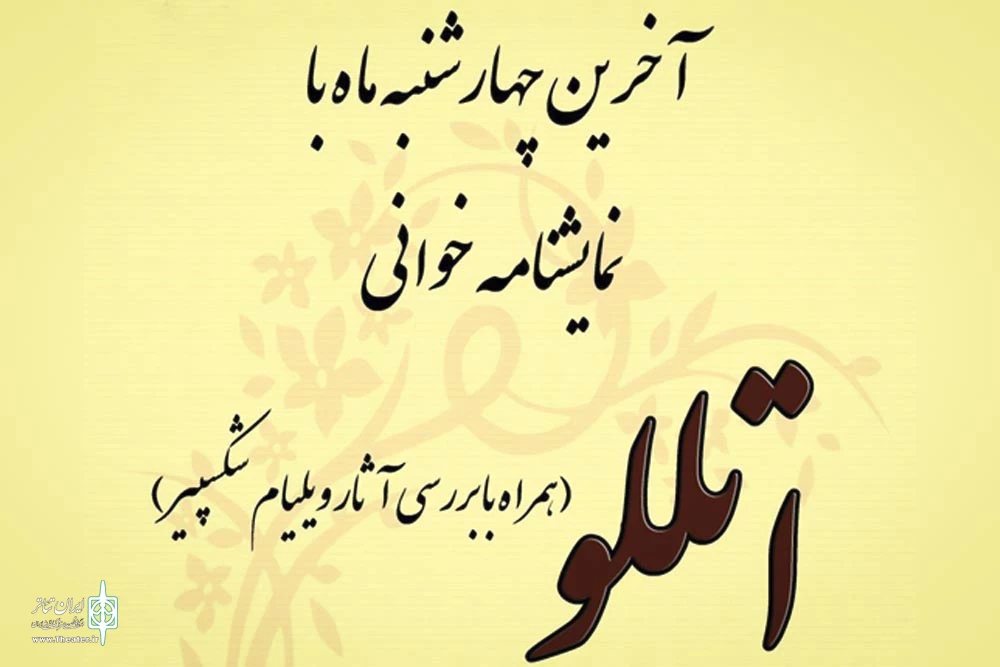 آخرین چهارشنبه ماه با
نمایشنامه خوانی
اتللو
(همراه با بررسی آثار ویلیام شکسپیر)
ایران تئاتر
www.Theater.ir